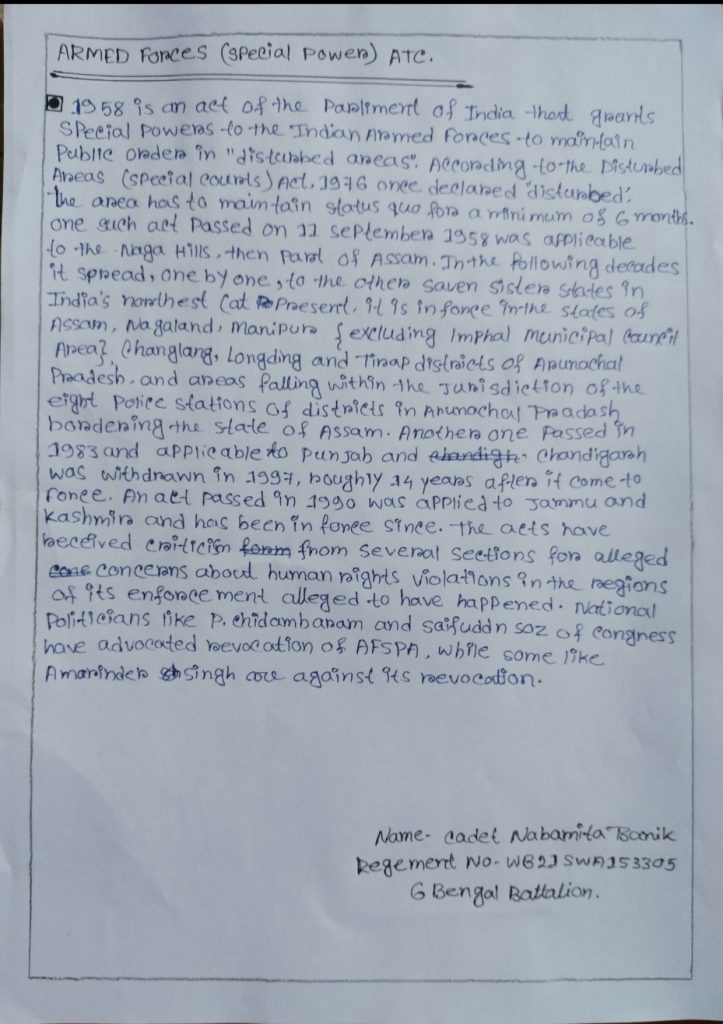 ARMED Forces (special power) ATC.
1958 is an act of the Parliment of India that grants
Special powers to the Indian Armed Forces to maintain
Public order in "disturbed areas". According to the Disturbed
Areas (special courts) Act, 1976 once declared 'disturbed',
the area has to maintain status quo for a minimum of 6 months.
one such act Passed on 11 September 1958 was applicable
to the Naga Hills, then part of Assam. In the following decades
it spread, one by one, to the other saven sister states in
India's northest (at Present, it is in force in the states of
Assam, Nagaland, Manipur {excluding Imphal Municipal Council
Area}, Changlang, Longding and Tirap districts of Arunachal
Pradesh, and areas falling within the Jurisdiction of the
eight Police stations of districts in Arunachal Pradash
bordering the state of Assam. Another one Passed in
1983 and applicable to punjab and chandigh. Chandigarh
was withdrawn in 1997, roughly 14 years after it come to
force. An act passed in 1990 was applied to Jammu and
Kashmir and has been in force since. The acts have
received criticism form from several sections for alleged
concerns about human rights violations in the regions
of its enforcement alleged to have happened. National
Politicians like P. chidambaram and saifuddn soz of congress
have advocated revocation of AFSPA, while some like
Amarinder singh are against its revocation.
Name- cadet Nabamita Banik
Regement No- WB21SWA153305
6 Bengal Battalion.